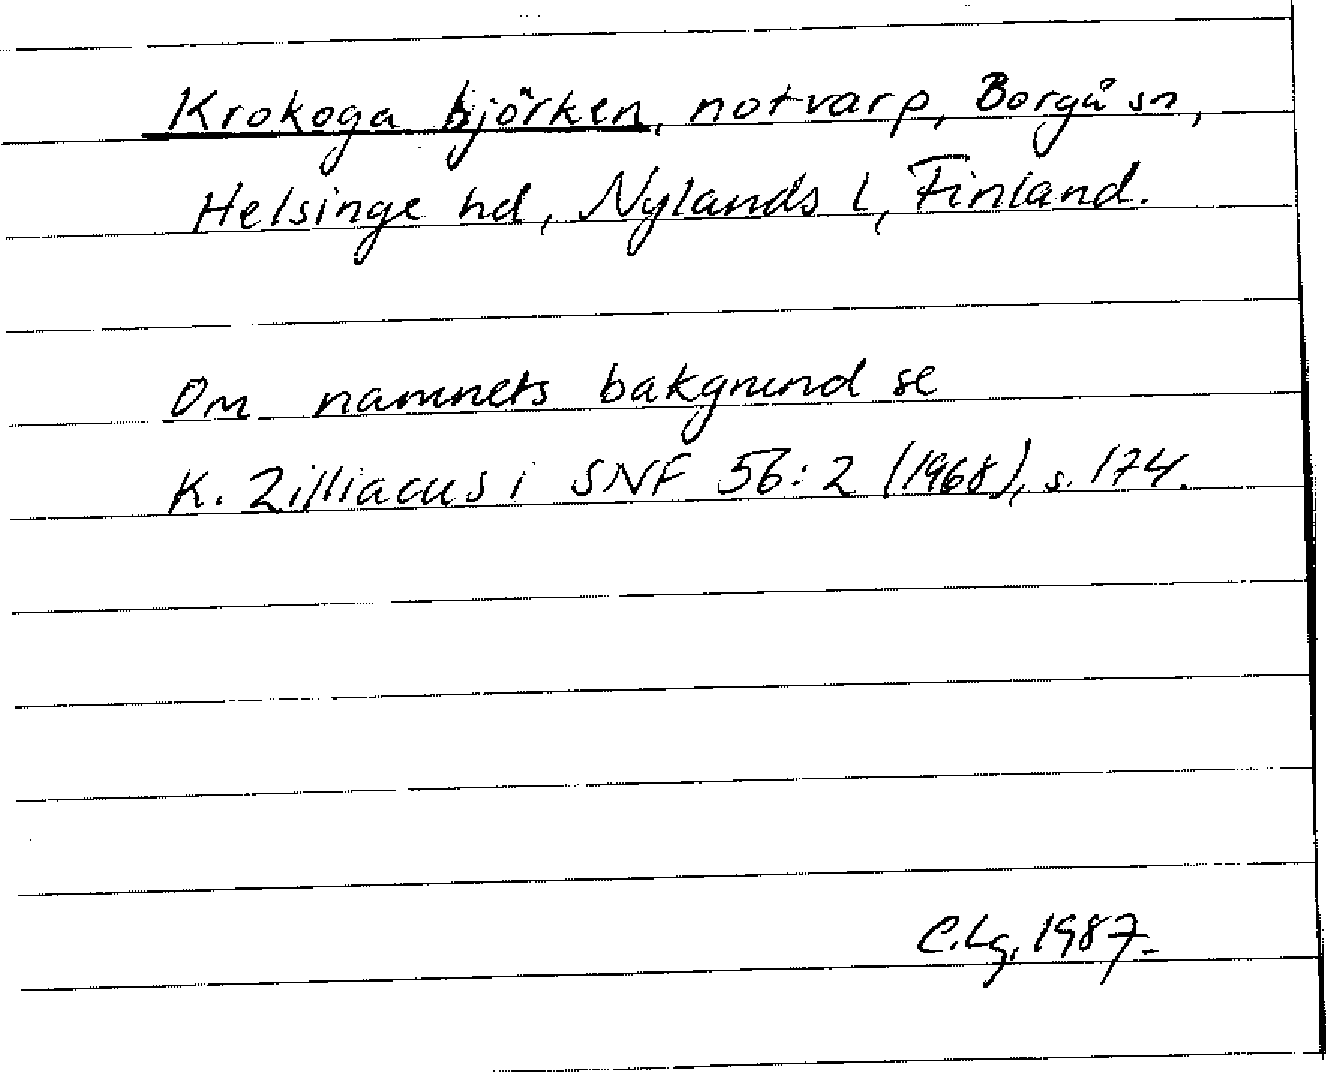 Krokoga björken, notvarp, Borgå sn,
Helsinge hd, Nylands l, Finland.
Om namnets bakgrund se
K. Zilliacus i SNF 56:2 (1968), s. 174.
C.Lg, 1987.